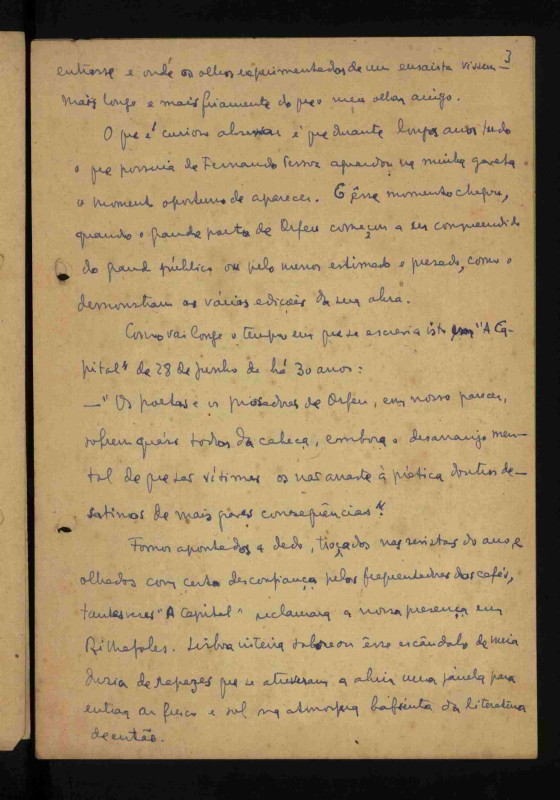 3
entrasse e onde os olhos experimentados de um ensaista vissem
mais longe e mais friamente do que o meu olhar amigo.
O que é curioso observar é que durante longos anos tudo
o que possuia de Fernando Pessoa aguardou na minha gaveta
o momento oportuno de aparecer. E êsse momento chegou,
quando o grande poeta de Orfeu começou a ser compreendido
do grande público ou pelo menos estimado e prezado, como o
demonstram as várias edições da sua obra.
Como vai longe o tempo em que se escrevia isto em "A Ca-
pital" de 28 de junho de há 30 anos:
— "Os poetas e os prosadores de Orfeu, em nosso parecer,
sofrem quási todos da cabeça, embora o desarranjo men-
tal de que são vítimas os não arraste à prática doutros de-
satinos de mais graves consequências".
Fomos apontados a dedo, troçados nas revistas do ano, e
olhados com certa desconfiança pelos frequentadores dos cafés,
tantas vezes "A Capital" reclamara a nossa presença em
Rilhafoles. Lisboa inteira saboreou êsse escândalo de meia
duzia de rapazes que se atreveram a abrir uma janela para
entrar ar fresco e sol na atmosfera bafienta da literatura
de então.